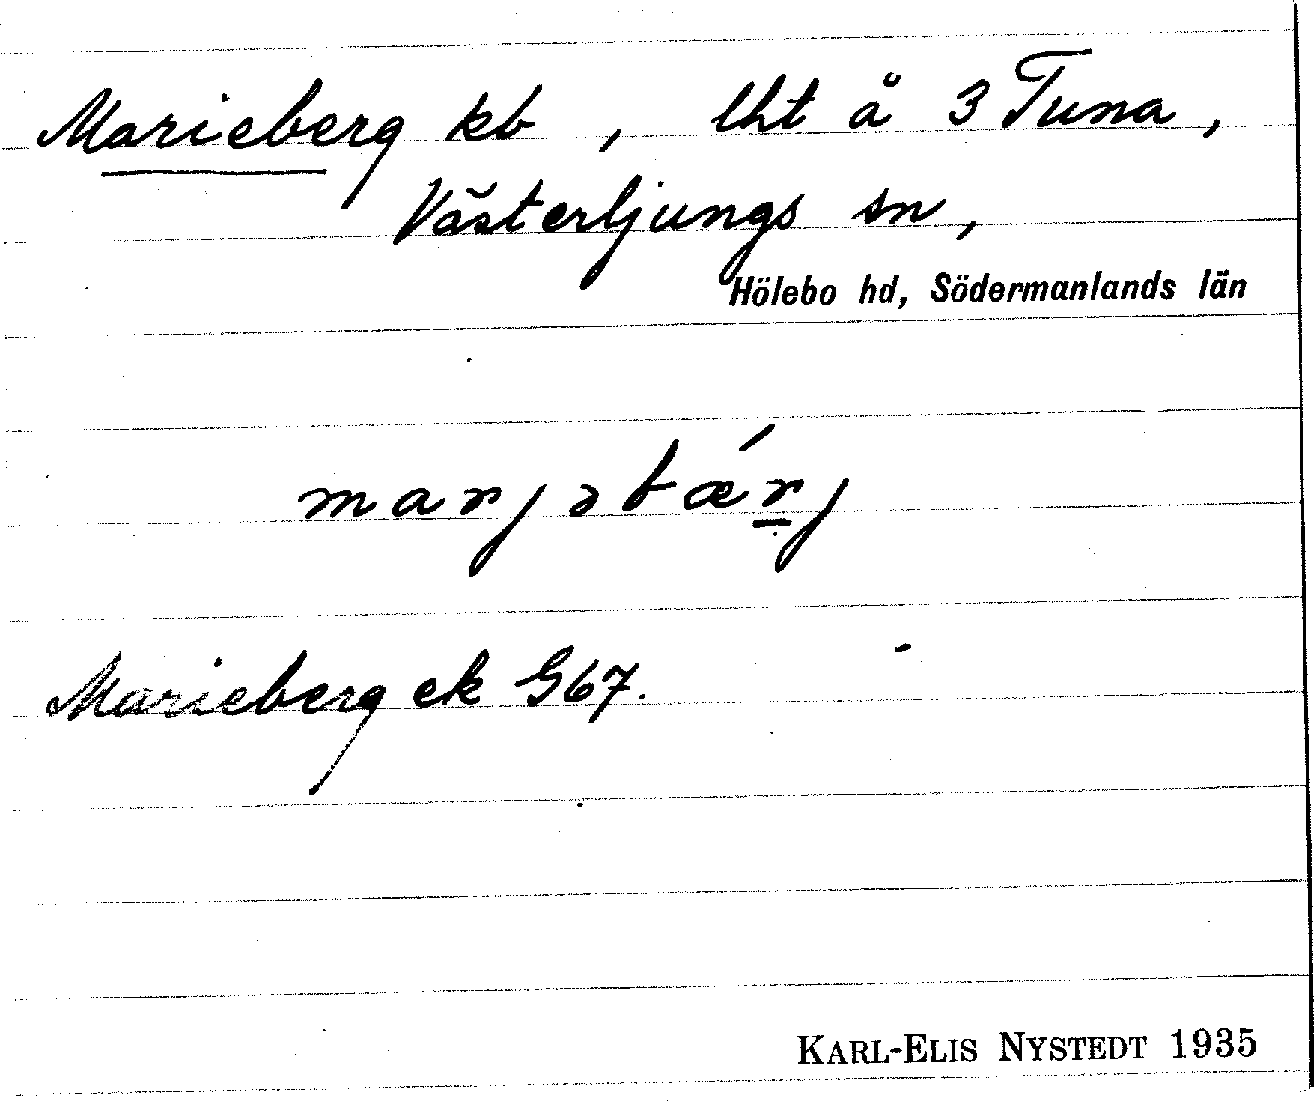 Marieberg kb, lht å 3 Tuna,
Västerljungs sn,
Hölebo hd, Södermanlands län
marjəbǽr̲j
Marieberg ek G67.
KARL-ELIS NYSTEDT 1935